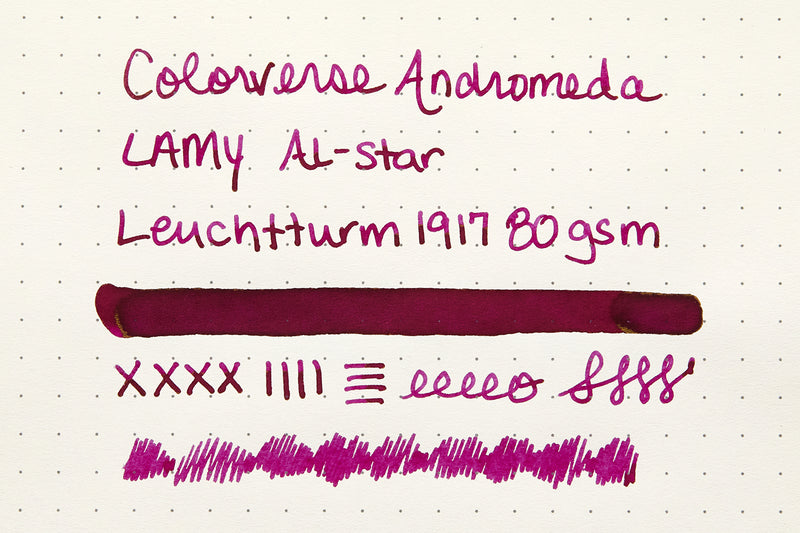 Colorverse Andromeda
LAMY AL-star
Leuchtturm 1917 80 gsm
XXXX